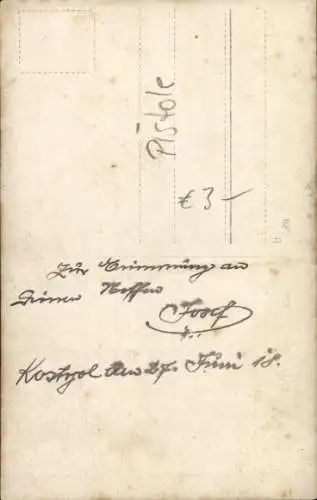 Pistole
€ 3-
Zur Erinnerung an
Deinen Neffen
Josef
Kostpol am 27. Juni 18.